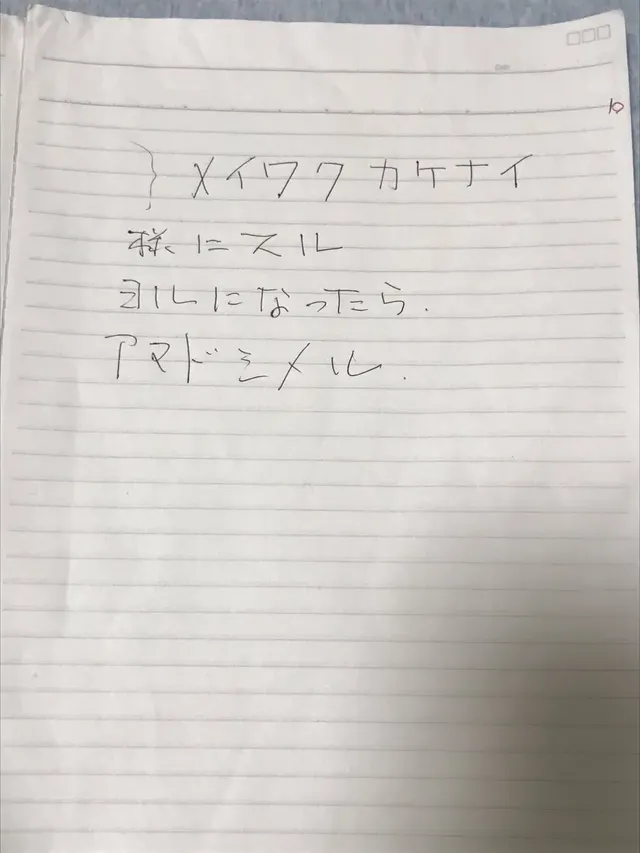 Date
10
} メイワクカケナイ
様にスル
ヨルになったら.
アマドシメル.